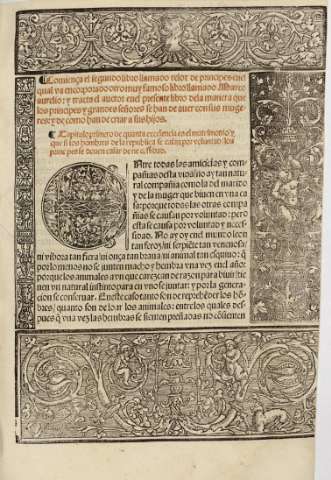 ¶ Comiença el segundo libro llamado relox de principes: enel
qual va encorporado otro muy famoso libro llamado Marco
aurelio: y tracta el auctor enel presente libro dela manera que
los principes y grandes señores se han de auer con sus muge
res: y de como han de criar a sus hijos.
¶ Capitulo primero de quanta excelencia es el matrimonio/y
que si los hombres de la republica se casan por voluntad: los
principes se deuen casar de necessidad.
Ntre todas las amicicias y com
pañias desta vida/no ay tan natu
ral compañia como la del marido
y de la muger que biuen en vna ca
sa: porque todas las otras compa
ñias se causan por voluntad: pero
esta se causa por voluntad y neces
sidad. No ay oy enel mundo leon
tan feroz/ni serpiēte tan venenosa/
ni viuora tan fiera/ni onça tan braua/ni animal tan esquiuo: q̄
por lo menos no se junten macho y hembra vna vez enel año:
porque los animales avn que carezcan de razon para biuir/tie
nen vn natural instinto para en vno se juntar: y por la genera
cion se conseruar. En este caso tanto son de reprehēder los hō
bres/ quanto son de loar los animales: entre los quales des
pues q̄ vna vez las hembras se sienten preñadas no cōsienten